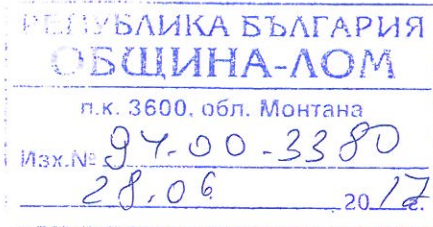 РЕПУБЛИКА БЪЛГАРИЯ
ОБЩИНА-ЛОМ
п.к. 3600, обл. Монтана
Изх.№ 94-00-3380
28.06 2017г.